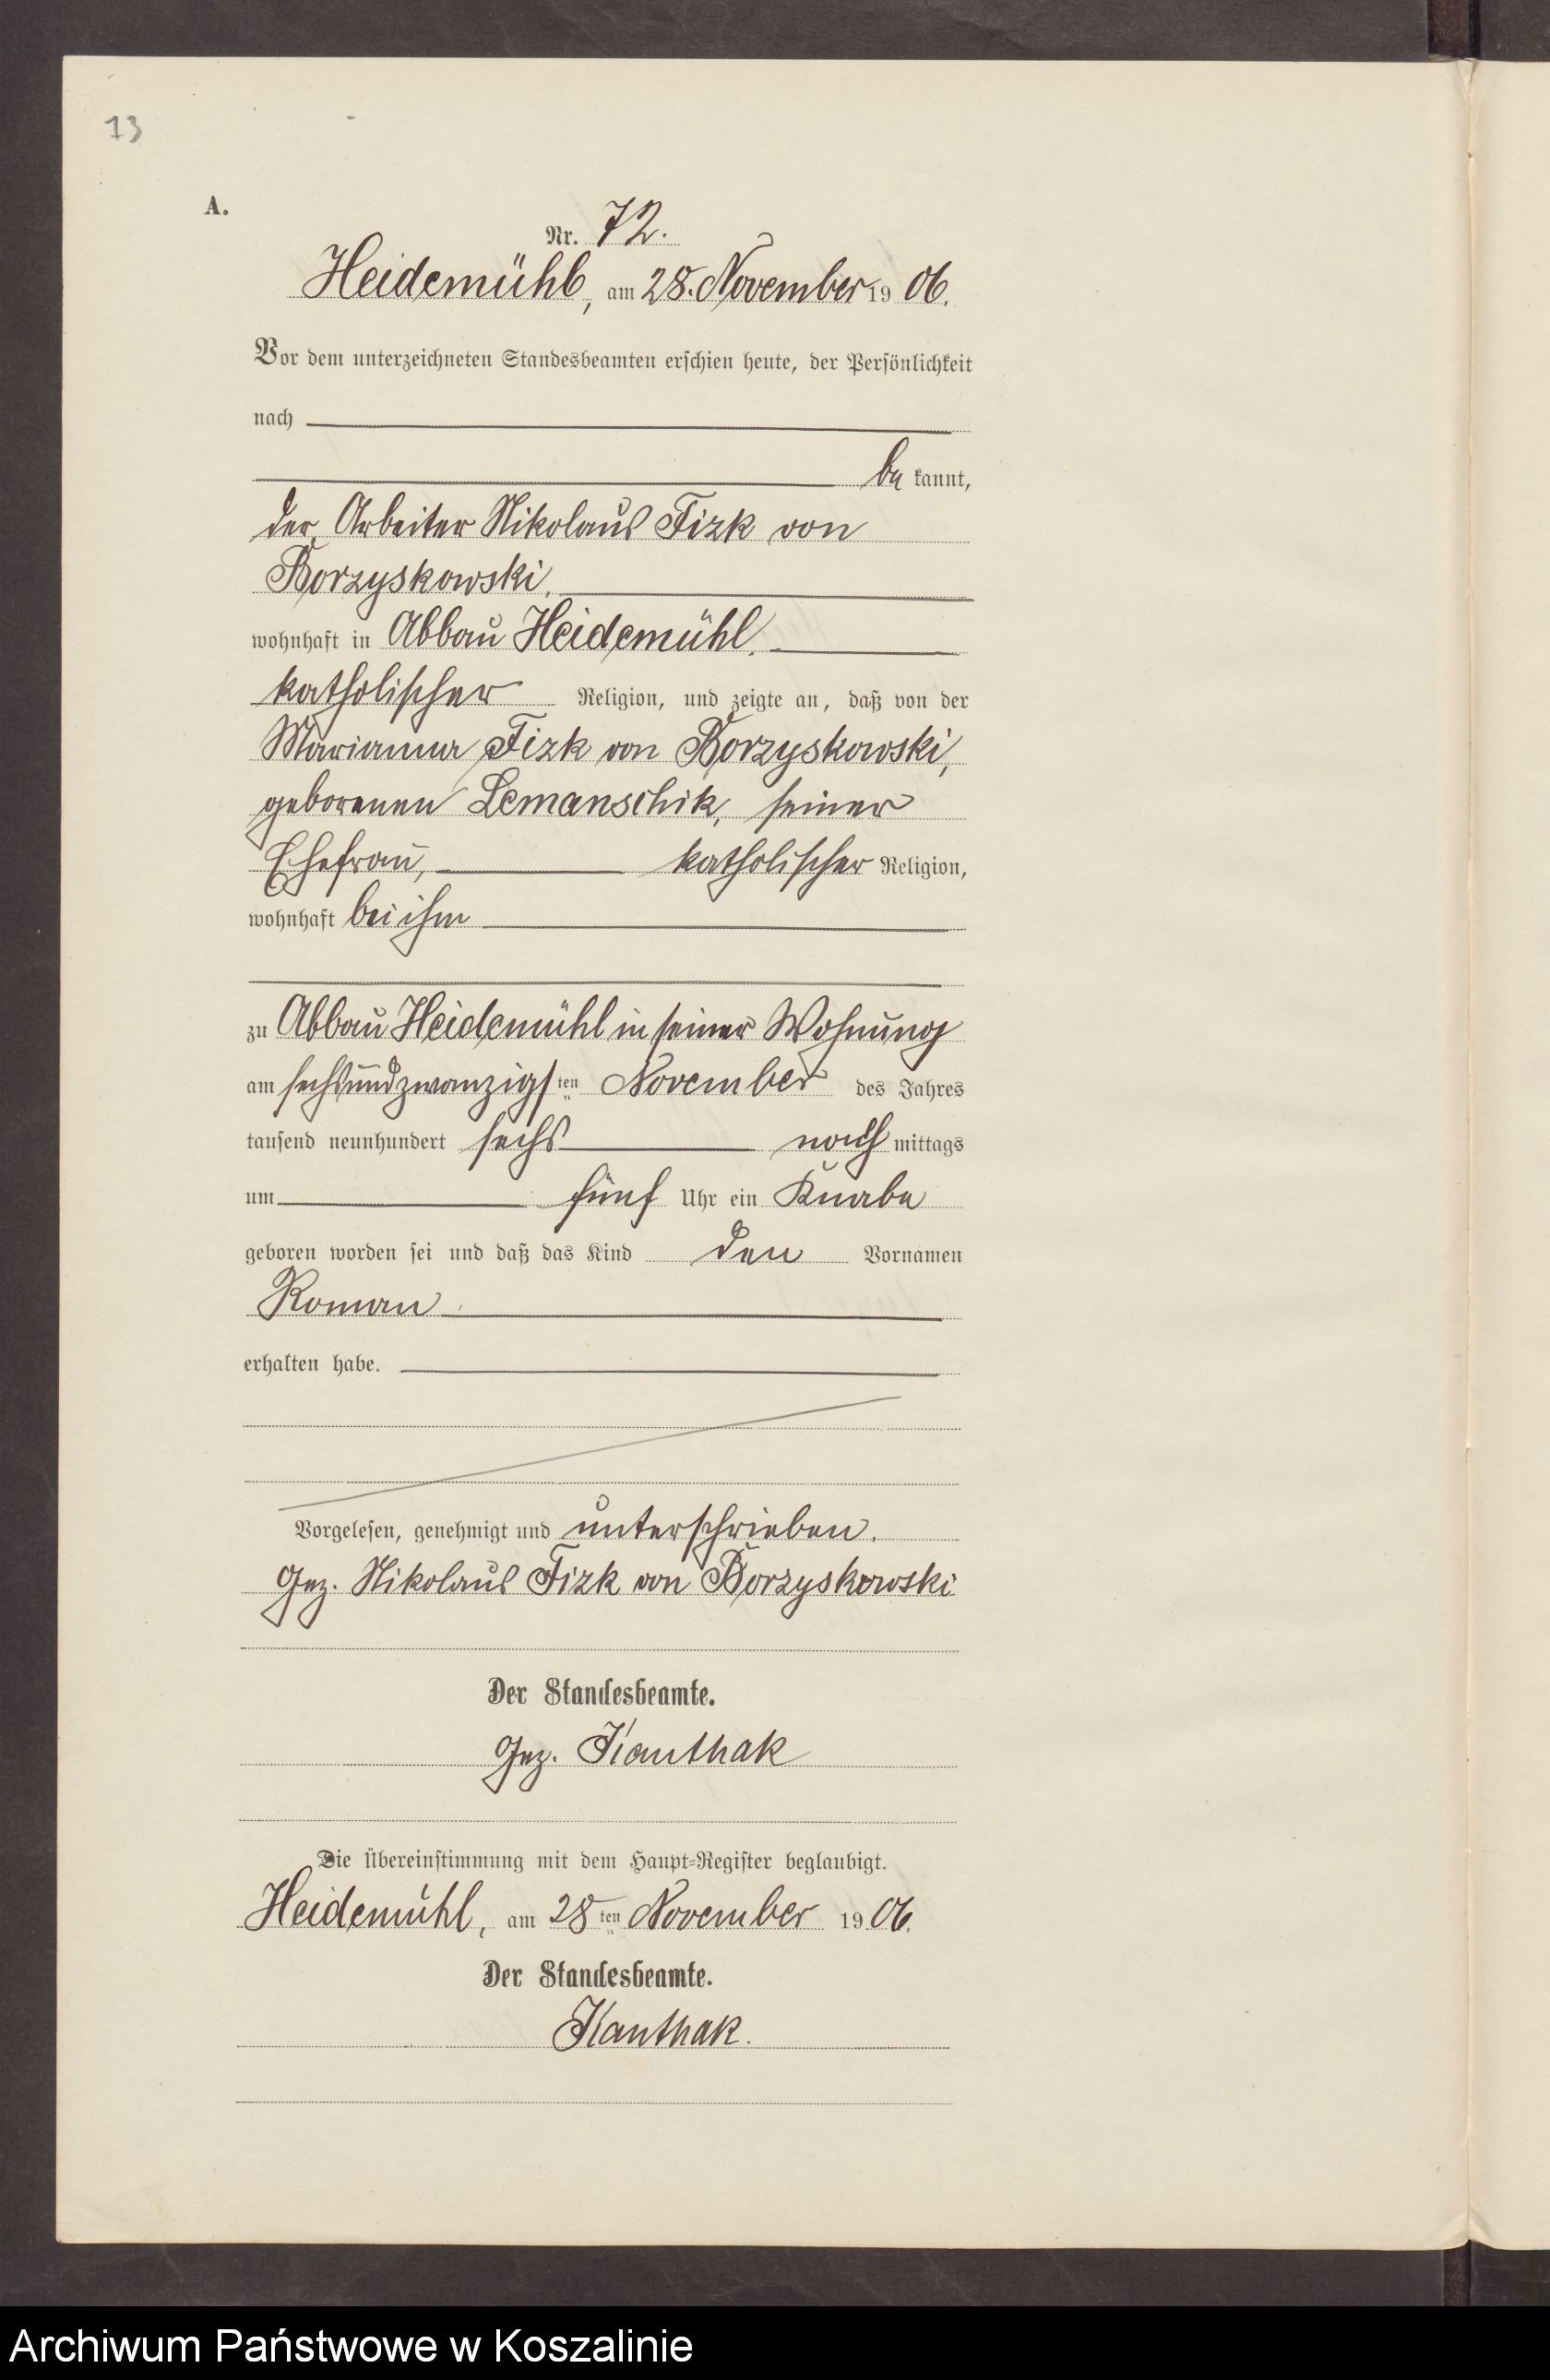 13
A.
Nr. 72.
Heidemühl, am 28. November 1906.
Vor dem unterzeichneten Standesbeamten erschien heute, der Persönlichkeit
nach
be kannt,
der Arbeiter Nikolaus Fizk von
Borzyskowski,
wohnhaft in Abbau Heidemühl,
katholischer Religion, und zeigte an, daß von der
Marianna Fizk von Borzyskowski,
geborenen Lemanschik, seiner
Ehefrau, katholischer Religion,
wohnhaft bei ihm
zu Abbau Heidemühl in seiner Wohnung
am sechsundzwanzigsten November des Jahres
tausend neunhundert sechs nachmittags
um fünf Uhr ein Knabe
geboren worden sei und daß das Kind den Vornamen
Roman
erhalten habe.
Vorgelesen, genehmigt und unterschrieben.
Gez. Nikolaus Fizk von Borzyskowski
Der Standesbeamte.
Gez. Kanthak
Die Übereinstimmung mit dem Haupt-Register beglaubigt.
Heidemühl, am 28ten November 1906.
Der Standesbeamte.
Kanthak.
Archiwum Państwowe w Koszalinie